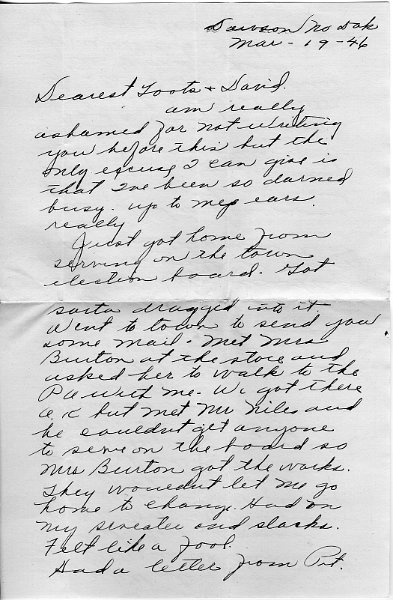 Dawson No Dak
Mar - 19 - 46
Dearest Toots & David.
am really
ashamed for not writing
you before this but the
only excuse I can give is
that I've been so darned
busy. up to my ears.
really
Just got home from
serving on the town
election board. Got
sorta dragged into it.
Went to town to send you
some mail. Met Mrs
Burton at the store and
asked her to walk to the
P.O. with me. We got there
o.k but met Mr Nile and
he couldnt get anyone
to serve on the board so
Mrs Burton got the works.
They wouldnt let me go
home to change. Had on
my sweater and slacks.
Felt like a fool.
Had a letter from Pvt.